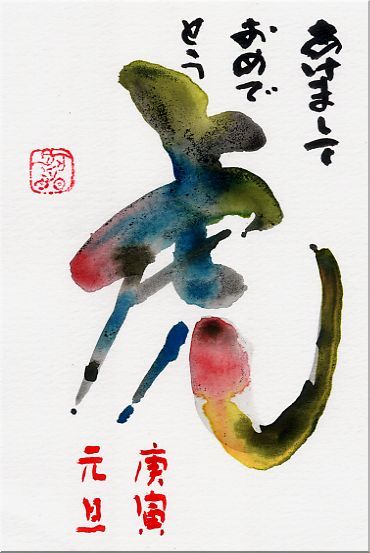 あけまして
おめで
とう
虎
庚寅
元旦